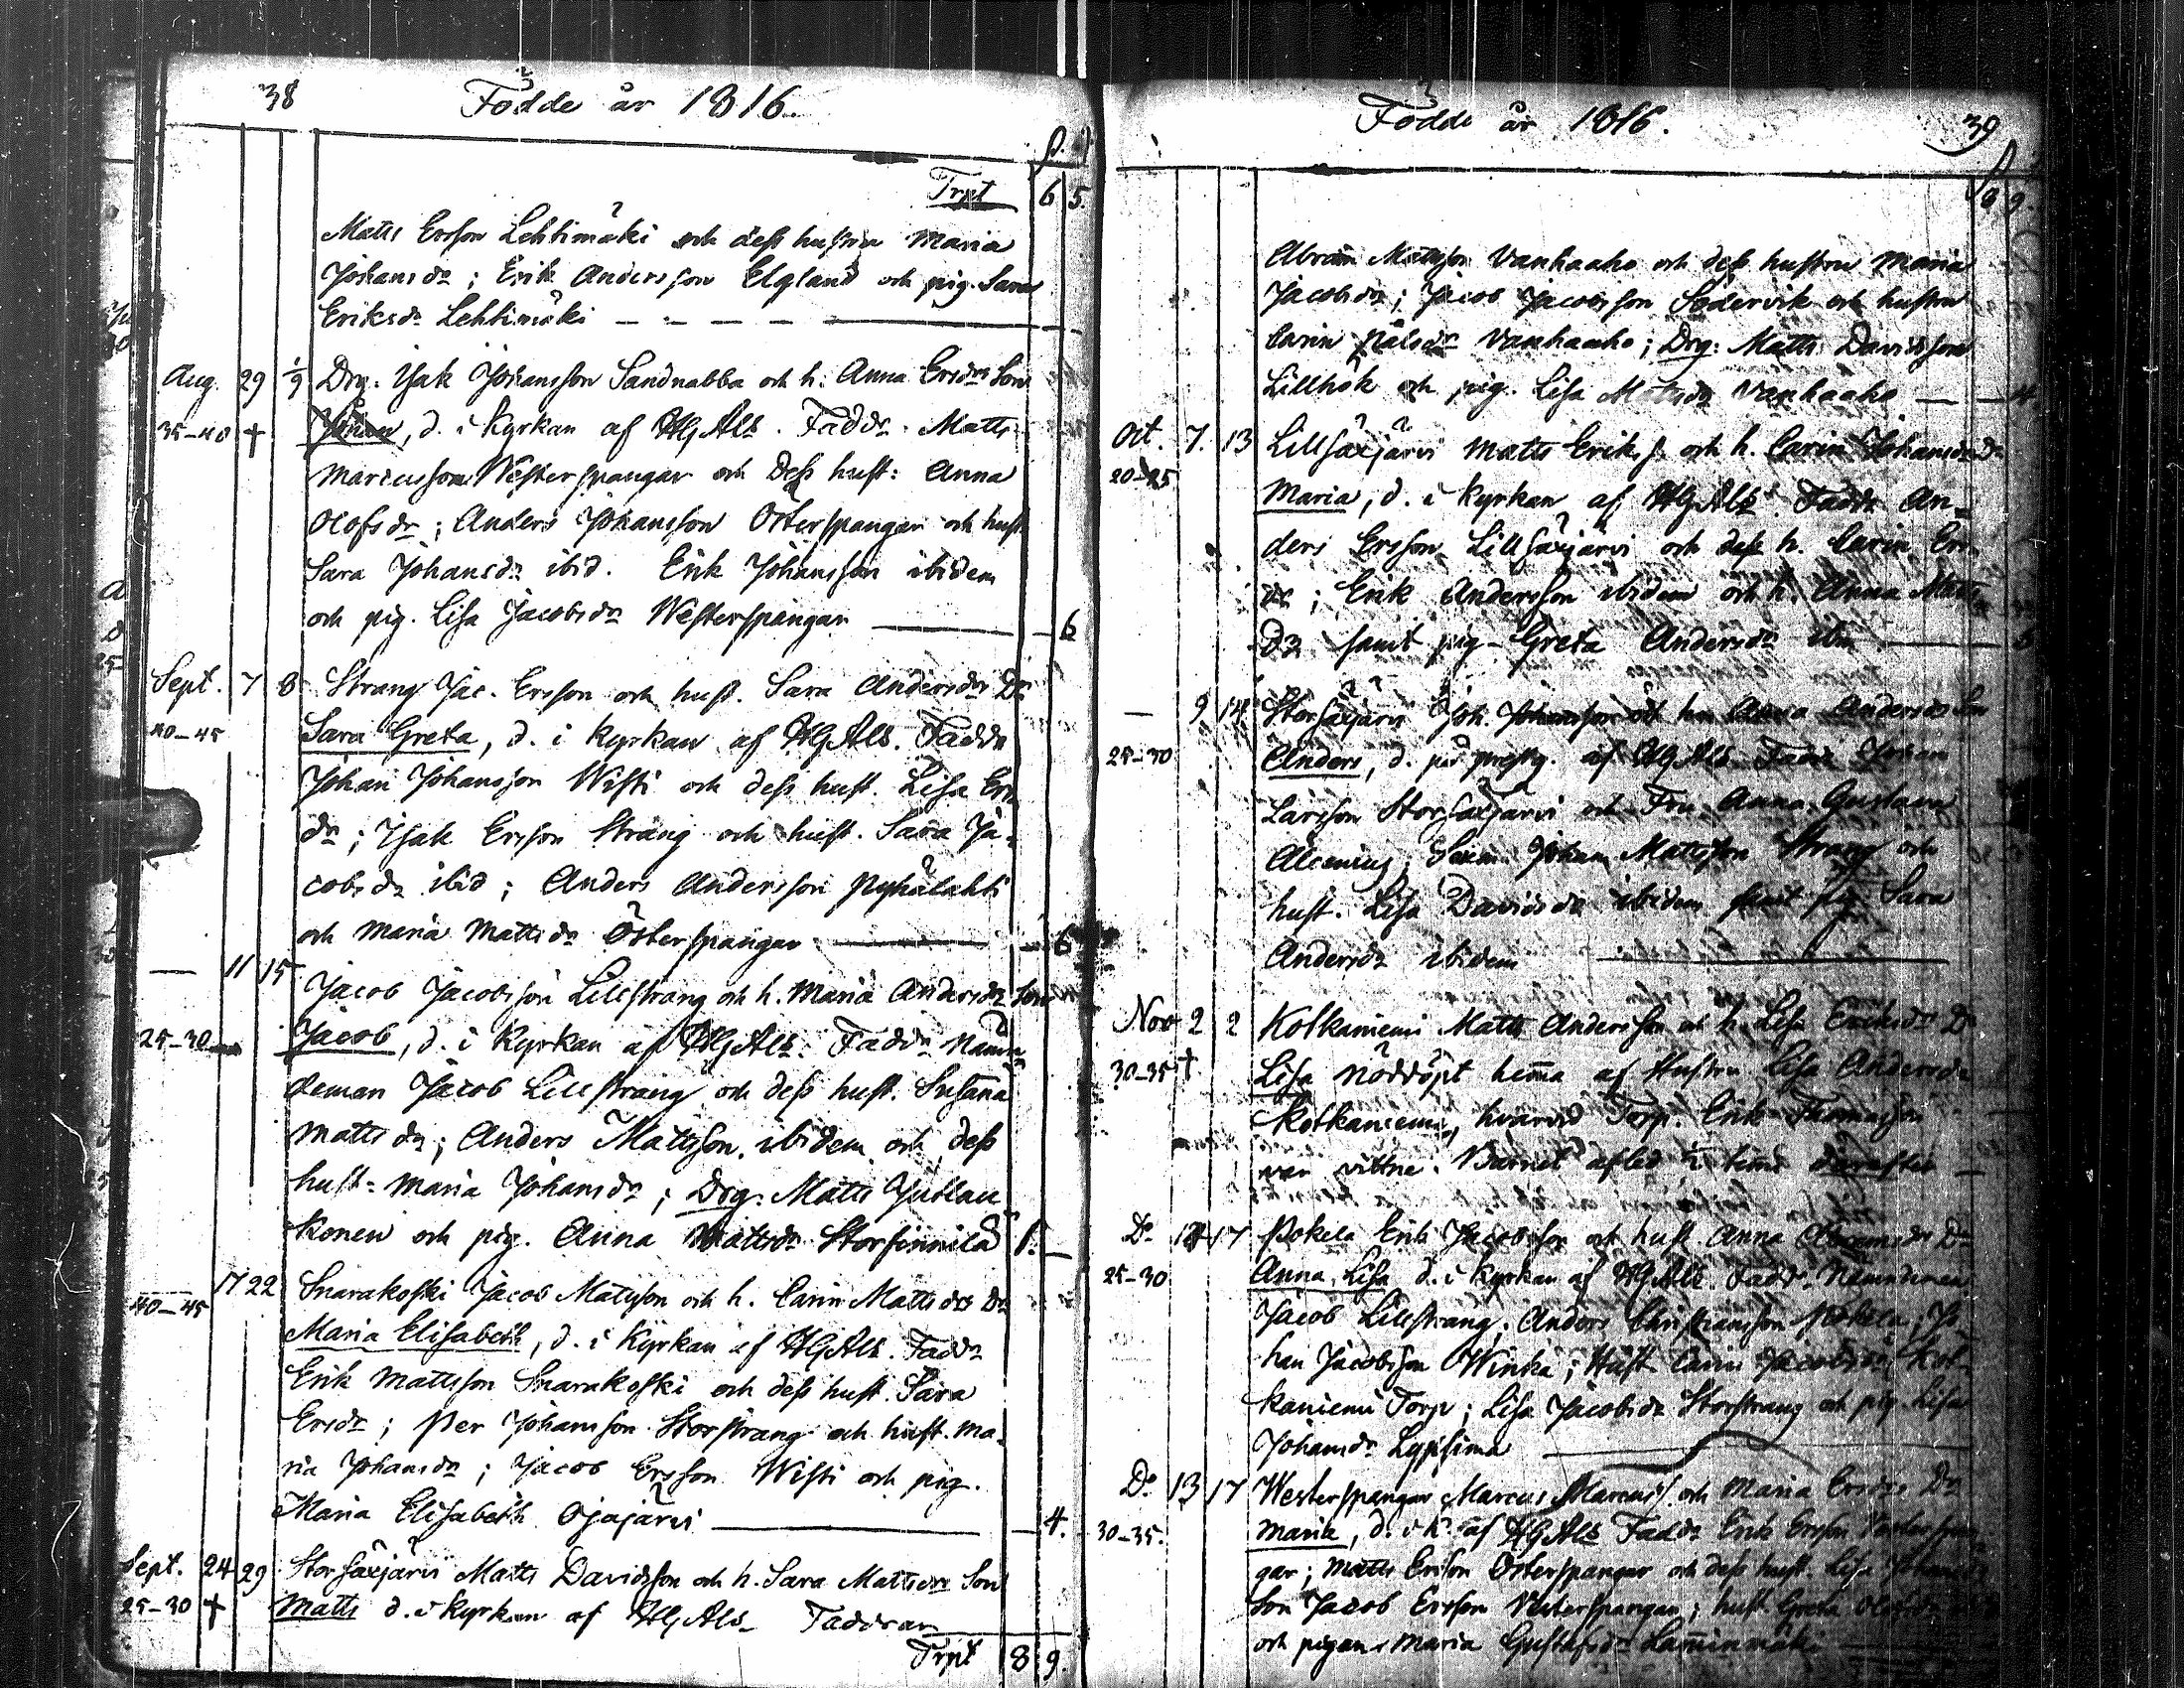 38 Födde år 1816.
Trpt 6 5.
Matts Ersson Lehtimäki och dess hustru Maria
Johansdr; Erik Andersson Elgland och pig. Sara
Eriksdr Lehtimäki
Aug. 29 1/9 Drg. Isak Johansson Sandnabba och h. Anna Ersdrs Son
35-40 + Johan, d. i Kyrkan af HGAls. Faddr. Matts
Marcusson Westerspangar och Dess hust: Anna
Olofsdr; Anders Johansson Österspangar och hust
Sara Johansdr ibid. Erik Johansson ibidem
och pig. Lisa Jacobsdr Westerspangar 6
Sept. 7 8 Strang Jac. Ersson och hust. Sara Andersdrs Dr
40-45 Sara Greta, d. i Kyrkan af HGAls. Faddr
Johan Johansson Wisti och dess hust. Lisa Ers
dr; Isak Ersson Strang och hust. Sara Ja-
cobsdr ibid; Anders Andersson Pyhälahti
och Maria Mattsdr Österspangar 6
— 11 15 Jacob Jacobsson Lillstrang och h. Maria Andersdrs Son
25-30 Jacob, d. i Kyrkan af HGAls. Faddr Nämn
deman Jacob Lillstrang och dess hust. Susana
Mattsdr; Anders Mattsson ibidem och dess
hust. Maria Johansdr; Drg. Matts
konen och pig. Anna Mattsdr Storfinnilä 1.
— 17 22 Snarakoski Jacob Mattsson och h. Carin Mattsdrs Dr
40-45 Maria Elisabeth, d. i Kyrkan af HGAls. Faddr
Erik Mattsson Snarakoski och dess hust. Sara
Ersdr; Per Johansson Storstrang och hust. Ma-
ria Johansdr; Jacob Ersson Wisti och pig.
Maria Elisabeth Ojajärvi 4.
Sept. 24 29 Storsäxjärvi Matts Davidsson och h. Sara Mattsdrs Son
25-30 + Matts d. i Kyrkan af HGAls Faddrar
Trpt 8 9.
Födde år 1816. 39
8 9.
Abram Mattsson Vanhaaho och dess hustru Maria
Jacobsdr; Jacob Jacobsson Södervik och hustru
Carin Pålsdr Vanhaaho; Drg: Matts Davidsson
Lillhök och pig. Lisa Mattsdr Vanhaaho 4.
Oct. 7. 13 Lillsäxjärvi Matts Eriks. och h. Carin Johansdrs Dr
20-25 Maria, d. i Kyrkan af HGAls. Faddr An-
ders Ersson Lillsäxjärvi och dess h. Carin Ers
dr; Erik Andersson ibidem och h. Anna Matts
dr samt pig. Greta Andersdr ibm
— 9 14 Storsäxjärvi Joh. Johansson och h. Anna Andersdrs Son
25-30 Anders, d. på prestg. af HGAls Faddr Johan
Larsson Storsäxjärvi och Fru Anna Gustava
Alcenius; Johan Mattsson Strang och
hust. Lisa Davidsdr ibidem samt pig. Sara
Andersdr ibidem
Nov 2 2 Kotkaniemi Matts Andersson och h. Lisa Eriksdrs Dr
30-35 + Lisa nöddöpt hema af Hustru Lisa Andersdr
Kotkaniemi, hvarvid Torp. Erik Thomasson
var vittne. Barnet afled 1/2 tima derefter
Do 17 Pokela Erik Jacobsson och hust Anna Abramsdrs Dr
25-30 Anna Lisa d. i Kyrkan af HGAls. Faddr. Nämndeman
Jacob Lillstrang; Anders Christiansson Pokela; Jo
han Jacobsson Winka; Hust. Carin Jacobsdr Kot-
kaniemi Torp; Lisa Jacobsdr Storstrang och pig. Lisa
Johansdr
Do 13 17 Westerspangar Marcus Marcuss. och Maria Ersdrs Dr
30-35. Maria, d. i K. af HGAls Faddr Erik Ersson Vesterspan
gar; Matts Ersson Österspangar och dess hust. Lisa
Son Jacob Ersson Vesterspangar; hust. Greta
och pigan Maria Gustafsdr Lamminmäki